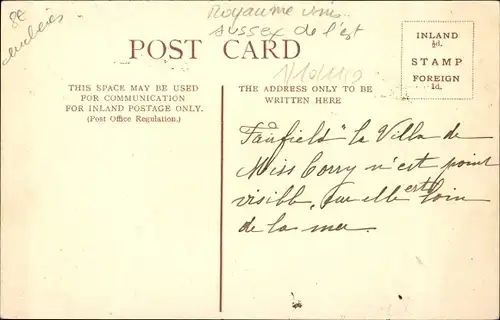 8€
Royaume unis
sussex de l'est
POST CARD
INLAND
½d.
STAMP
FOREIGN
1d.
THIS SPACE MAY BE USED
FOR COMMUNICATION
FOR INLAND POSTAGE ONLY.
(Post Office Regulation.)
THE ADDRESS ONLY TO BE
WRITTEN HERE
"Fairfield" la Villa de
Miss Corry n'est point
visible, elle est loin
de la mer.